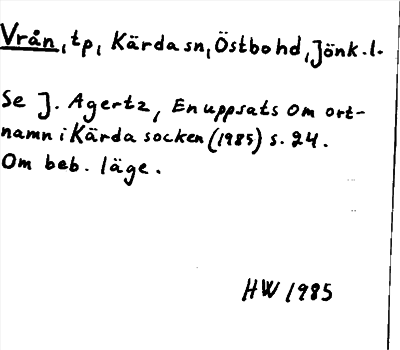 Vrån, tp, Kärda sn, Östbo hd, Jönk.l.
Se J. Agertz, En uppsats om ort-
namn i Kärda socken (1985) s. 24.
Om beb. läge.
HW 1985